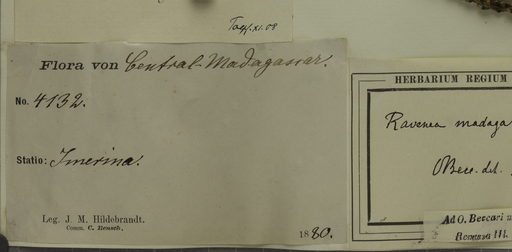 Flora von Central-Madagascar.
No. 4132.
Statio: Imerina.
Leg. J. M. Hildebrandt.
Comm. C. Rensch.
1880.
HERBARIUM REGIUM
Ravenea madaga
Becc. det.
Ad O. Beccari